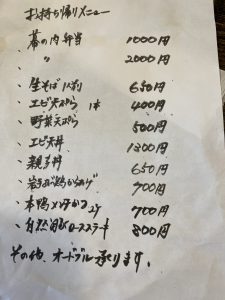 お持ち帰りメニュー
・幕の内弁当 1000円
・〃 2000円
・生そば 650円
・エビ天ぷら 1本 400円
・野菜天ぷら 500円
・エビ天丼 1300円
・親子丼 650円
・岩手鶏から揚げ 700円
・本鴨メンチかつ 2ケ 700円
・自然豚ロースステーキ 800円
その他、オードブル承ります。